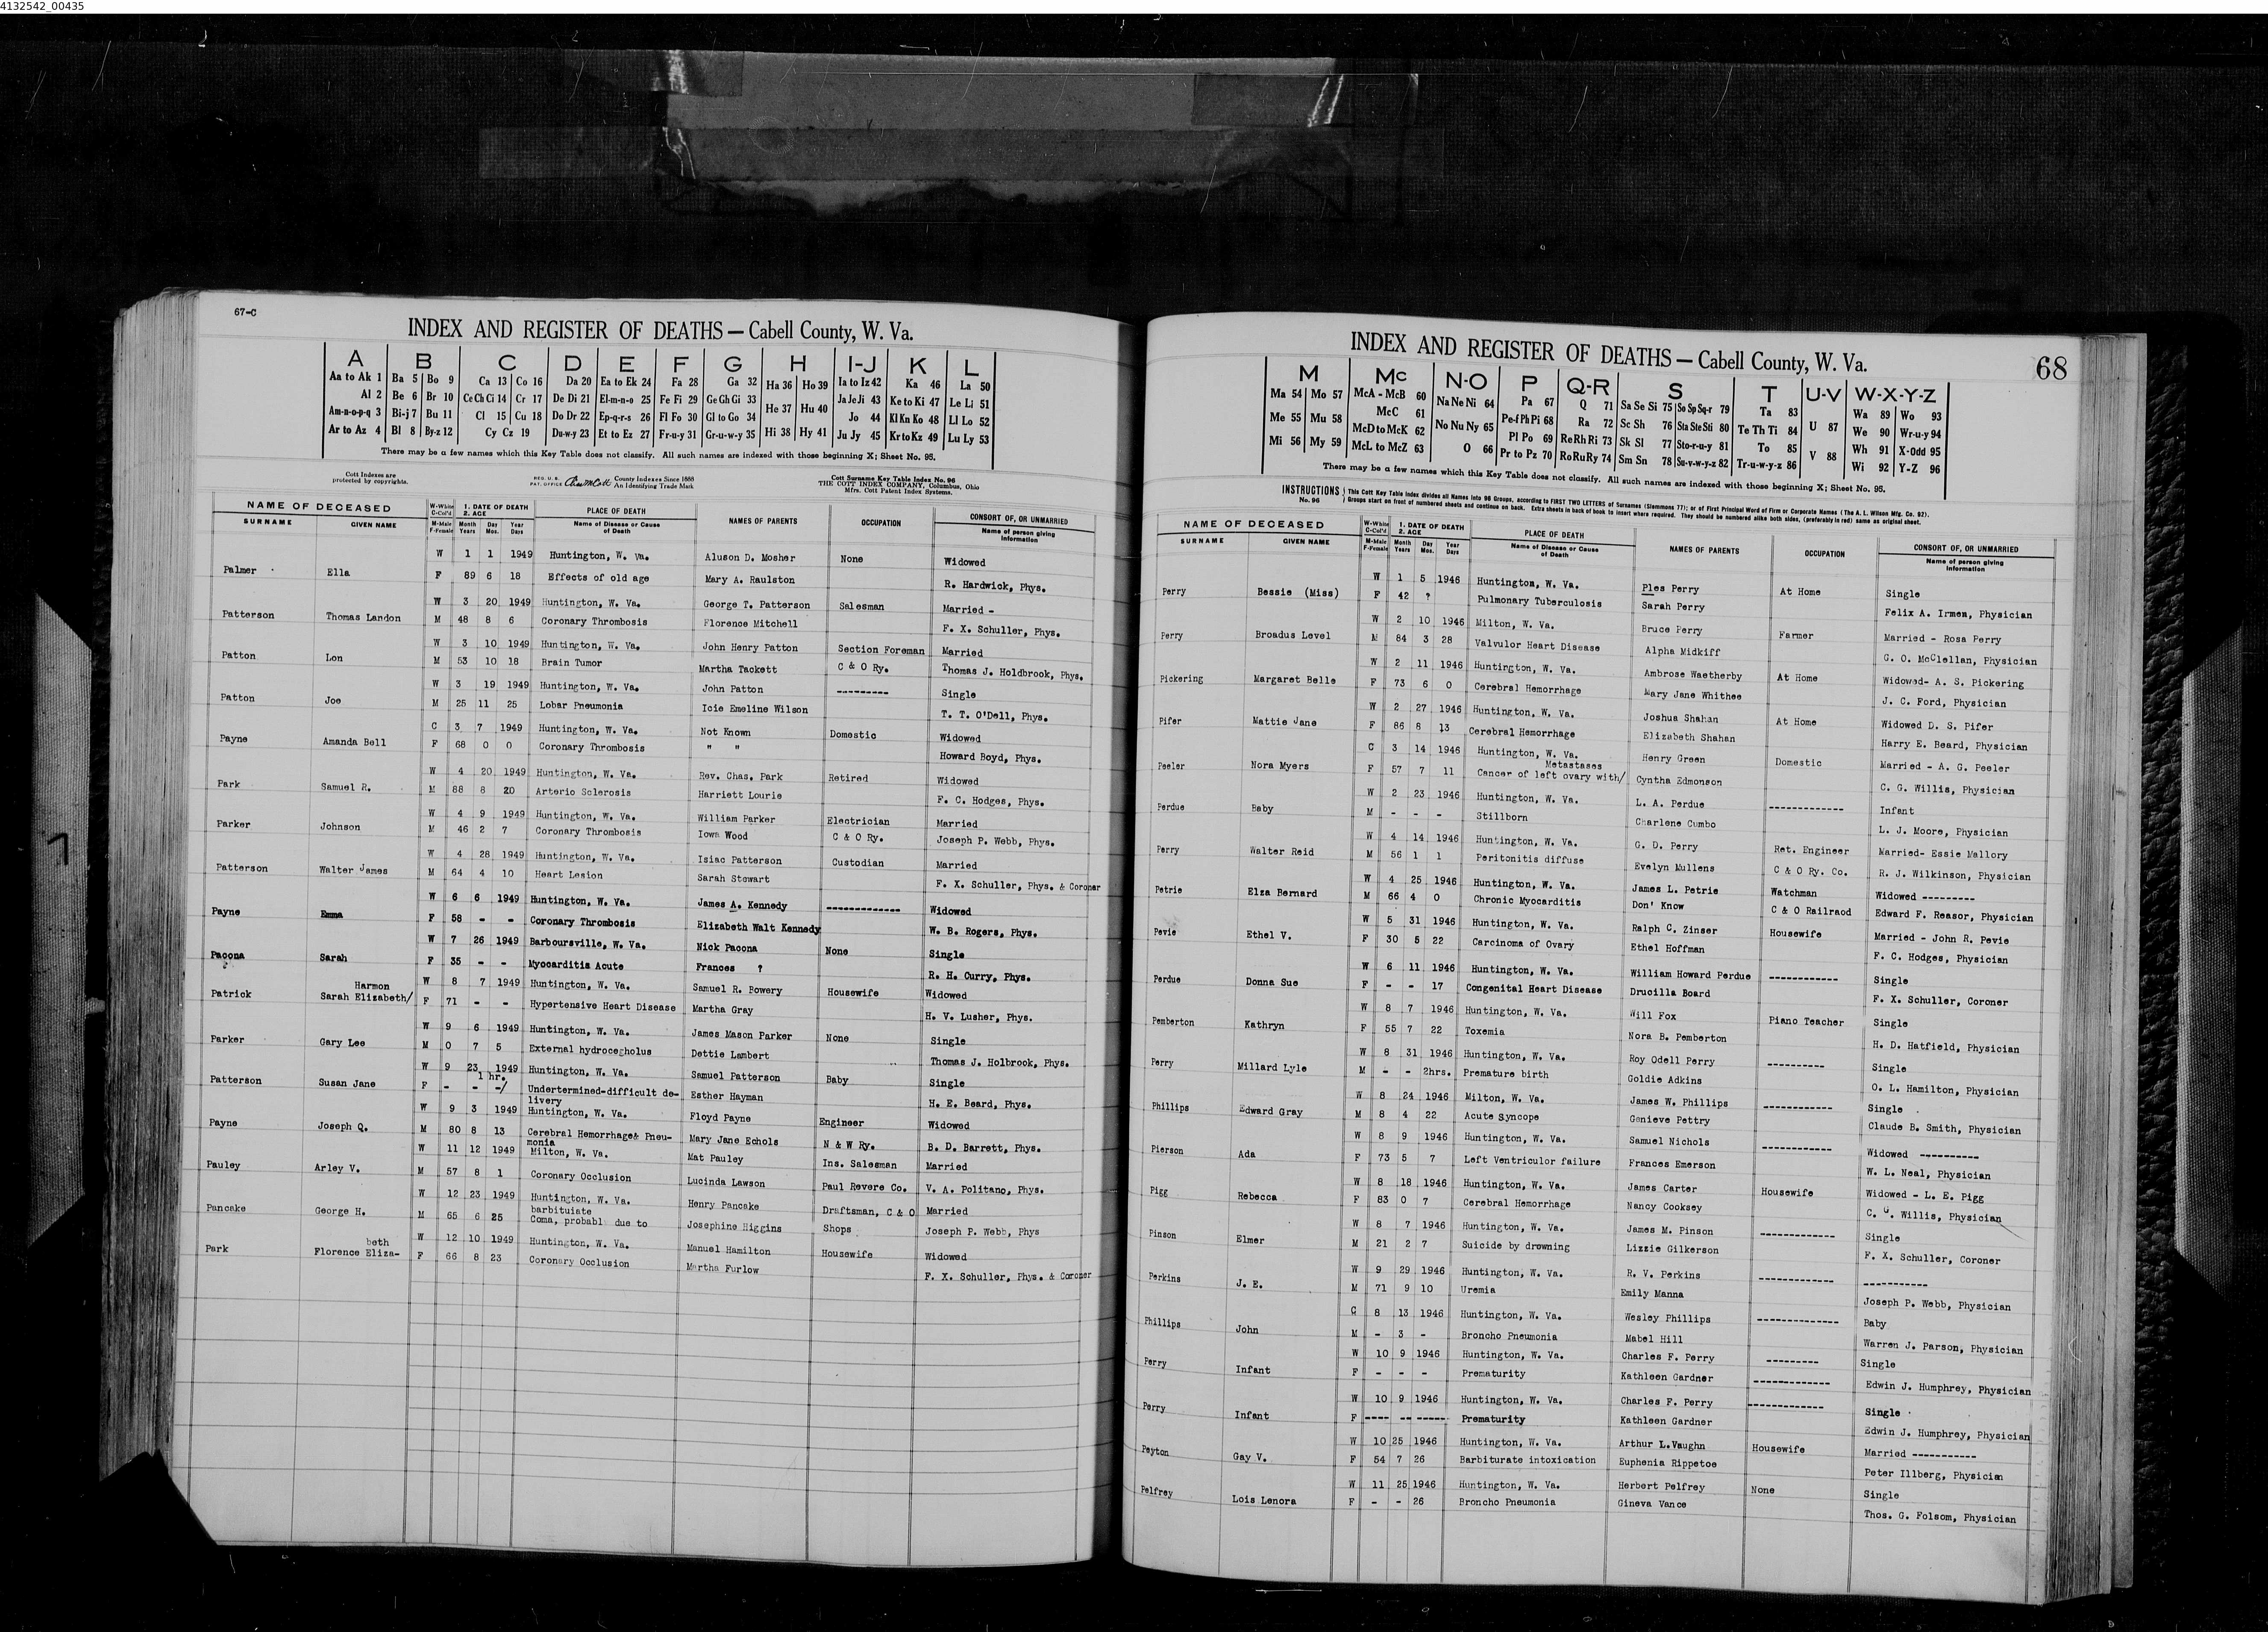 4132542_00435
67-C
INDEX AND REGISTER OF DEATHS — Cabell County, W. Va.
A B C D E F G H I-J K L
Aa to Ak 1 Ba 5 Bo 9 Ca 13 Co 16 Da 20 Ea to Ek 24 Fa 28 Ga 32 Ha 36 Ho 39 Ia to Iz 42 Ka 46 La 50
Al 2 Be 6 Br 10 Ce Ch Ci 14 Cr 17 De Di 21 El-m-n-o 25 Fe Fi 29 Ge Gh Gi 33 He 37 Hu 40 Ja Je Ji 43 Ke to Ki 47 Le Li 51
Am-n-o-p-q 3 Bi-j 7 Bu 11 Cl 15 Cu 18 Do Dr 22 Ep-q-r-s 26 Fl Fo 30 Gl to Go 34 Jo 44 Kl Kn Ko 48 Ll Lo 52
Ar to Az 4 Bl 8 By-z 12 Cy Cz 19 Du-w-y 23 Et to Ez 27 Fr-u-y 31 Gr-u-w-y 35 Hi 38 Hy 41 Ju Jy 45 Kr to Kz 49 Lu Ly 53
There may be a few names which this Key Table does not classify. All such names are indexed with those beginning X; Sheet No. 95.
Cott Indexes are
protected by copyrights.
REG. U. S.
PAT. OFFICE
County Indexes Since 1888
An Identifying Trade Mark
Cott Surname Key Table Index No. 96
THE COTT INDEX COMPANY, Columbus, Ohio
Mfrs. Cott Patent Index Systems.
NAME OF DECEASED W-White C-Col'd 1. DATE OF DEATH 2. AGE PLACE OF DEATH NAMES OF PARENTS OCCUPATION CONSORT OF, OR UNMARRIED
SURNAME GIVEN NAME M-Male F-Female Month Years Day Mos. Year Days Name of Disease or Cause of Death Name of person giving information
W 1 1 1949 Huntington, W. Va. Aluson D. Mosher None Widowed
Palmer Ella F 89 6 18 Effects of old age Mary A. Raulston R. Hardwick, Phys.
W 3 20 1949 Huntington, W. Va. George T. Patterson Salesman Married -
Patterson Thomas Landon M 48 8 6 Coronary Thrombosis Florence Mitchell F. X. Schuller, Phys.
W 3 10 1949 Huntington, W. Va. John Henry Patton Section Foreman Married
Patton Lon M 53 10 18 Brain Tumor Martha Tackett C & O Ry. Thomas J. Holdbrook, Phys.
W 3 19 1949 Huntington, W. Va. John Patton --------- Single
Patton Joe M 25 11 25 Lobar Pneumonia Icie Emeline Wilson T. T. O'Dell, Phys.
C 3 7 1949 Huntington, W. Va. Not Known Domestic Widowed
Payne Amanda Bell F 68 0 0 Coronary Thrombosis " " Howard Boyd, Phys.
W 4 20 1949 Huntington, W. Va. Rev. Chas. Park Retired Widowed
Park Samuel R. M 88 8 20 Arterio Sclerosis Harriett Lourie F. C. Hodges, Phys.
W 4 9 1949 Huntington, W. Va. William Parker Electrician Married
Parker Johnson M 46 2 7 Coronary Thrombosis Iowa Wood C & O Ry. Joseph P. Webb, Phys.
W 4 28 1949 Huntington, W. Va. Isiac Patterson Custodian Married
Patterson Walter James M 64 4 10 Heart Lesion Sarah Stewart F. X. Schuller, Phys. & Coroner
W 6 6 1949 Huntington, W. Va. James A. Kennedy ------------- Widowed
Payne Emma F 58 - - Coronary Thrombosis Elizabeth Walt Kennedy W. B. Rogers, Phys.
W 7 26 1949 Barboursville, W. Va. Nick Pacona None Single
Pacona Sarah F 35 - - Myocarditis Acute Frances ? R. H. Curry, Phys.
Harmon W 8 7 1949 Huntington, W. Va. Samuel R. Bowery Housewife Widowed
Patrick Sarah Elizabeth/ F 71 - - Hypertensive Heart Disease Martha Gray H. V. Lusher, Phys.
W 9 6 1949 Huntington, W. Va. James Mason Parker None Single
Parker Gary Lee M 0 7 5 External hydrocegholus Dettie Lambert Thomas J. Holbrook, Phys.
W 9 23 1949 Huntington, W. Va. Samuel Patterson Baby Single
1 hr.
Patterson Susan Jane F - - -/ Undertermined-difficult de- Esther Hayman H. E. Beard, Phys.
livery
W 9 3 1949 Huntington, W. Va. Floyd Payne Engineer Widowed
Payne Joseph Q. M 80 8 13 Cerebral Hemorrhage& Pneu- Mary Jane Echols N & W Ry. B. D. Barrett, Phys.
monia
W 11 12 1949 Milton, W. Va. Mat Pauley Ins. Salesman Married
Pauley Arley V. M 57 8 1 Coronary Occlusion Lucinda Lawson Paul Revere Co. V. A. Politano, Phys.
W 12 23 1949 Huntington, W. Va. Henry Pancake Draftsman, C & O Married
barbituiate
Pancake George H. M 65 6 25 Coma, probabl due to Josephine Higgins Shops Joseph P. Webb, Phys
beth W 12 10 1949 Huntington, W. Va. Manuel Hamilton Housewife Widowed
Park Florence Eliza- F 66 8 23 Coronary Occlusion Martha Furlow F. X. Schuller, Phys. & Coroner
INDEX AND REGISTER OF DEATHS — Cabell County, W. Va.
68
M Mc N-O P Q-R S T U-V W-X-Y-Z
Ma 54 Mo 57 McA - McB 60 Na Ne Ni 64 Pa 67 Q 71 Sa Se Si 75 So Sp Sq-r 79 Ta 83 U 87 Wa 89 Wo 93
Me 55 Mu 58 McC 61 No Nu Ny 65 Pe-f Ph Pi 68 Ra 72 Sc Sh 76 Sta Ste Sti 80 Te Th Ti 84 We 90 Wr-u-y 94
McD to McK 62 Pl Po 69 Re Rh Ri 73 Sk Sl 77 Sto-r-u-y 81 To 85 V 88 Wh 91 X-Odd 95
Mi 56 My 59 McL to McZ 63 O 66 Pr to Pz 70 Ro Ru Ry 74 Sm Sn 78 Su-v-w-y-z 82 Tr-u-w-y-z 86 Wi 92 Y-Z 96
There may be a few names which this Key Table does not classify. All such names are indexed with those beginning X; Sheet No. 95.
INSTRUCTIONS No. 96
This Cott Key Table Index divides all Names into 96 Groups, according to FIRST TWO LETTERS of Surnames (Slemmons 77); or of First Principal Word of Firm or Corporate Names (The A. L. Wilson Mfg. Co. 92).
Groups start on front of numbered sheets and continue on back. Extra sheets in back of book to insert where required. They should be numbered alike both sides, (preferably in red) same as original sheet.
NAME OF DECEASED W-White C-Col'd 1. DATE OF DEATH 2. AGE PLACE OF DEATH NAMES OF PARENTS OCCUPATION CONSORT OF, OR UNMARRIED
SURNAME GIVEN NAME M-Male F-Female Month Years Day Mos. Year Days Name of Disease or Cause of Death Name of person giving information
W 1 5 1946 Huntington, W. Va. Ples Perry At Home Single
Perry Bessie (Miss) F 42 ? Pulmonary Tuberculosis Sarah Perry Felix A. Irmen, Physician
W 2 10 1946 Milton, W. Va. Bruce Perry Farmer Married - Rosa Perry
Perry Broadus Level M 84 3 28 Valvulor Heart Disease Alpha Midkiff G. O. McClellan, Physician
W 2 11 1946 Huntington, W. Va. Ambrose Waetherby At Home Widowed- A. S. Pickering
Pickering Margaret Belle F 73 6 0 Cerebral Hemorrhage Mary Jane Whithee J. C. Ford, Physician
W 2 27 1946 Huntington, W. Va. Joshua Shahan At Home Widowed D. S. Pifer
Pifer Mattie Jane F 86 8 13 Cerebral Hemorrhage Elizabeth Shahan Harry E. Beard, Physician
C 3 14 1946 Huntington, W. Va. Henry Green Domestic Married - A. G. Peeler
Metastases
Peeler Nora Myers F 57 7 11 Cancer of left ovary with/ Cyntha Edmonson C. G. Willis, Physician
W 2 23 1946 Huntington, W. Va. L. A. Perdue ------------- Infant
Perdue Baby M - - - Stillborn Charlene Cumbo L. J. Moore, Physician
W 4 14 1946 Huntington, W. Va. G. D. Perry Ret. Engineer Married- Essie Mallory
Perry Walter Reid M 56 1 1 Peritonitis diffuse Evelyn Mullens C & O Ry. Co. R. J. Wilkinson, Physician
W 4 25 1946 Huntington, W. Va. James L. Petrie Watchman Widowed ---------
Petrie Elza Bernard M 66 4 0 Chronic Myocarditis Don' Know C & O Railraod Edward F. Reasor, Physician
W 5 31 1946 Huntington, W. Va. Ralph C. Zinser Housewife Married - John R. Pevie
Pevie Ethel V. F 30 5 22 Carcinoma of Ovary Ethel Hoffman F. C. Hodges, Physician
W 6 11 1946 Huntington, W. Va. William Howard Perdue ------------ Single
Perdue Donna Sue F - - 17 Congenital Heart Disease Drucilla Board F. X. Schuller, Coroner
W 8 7 1946 Huntington, W. Va. Will Fox Piano Teacher Single
Pemberton Kathryn F 55 7 22 Toxemia Nora B. Pemberton H. D. Hatfield, Physician
W 8 31 1946 Huntington, W. Va. Roy Odell Perry ---------- Single
Perry Millard Lyle M - - 2hrs. Premature birth Goldie Adkins O. L. Hamilton, Physician
W 8 24 1946 Milton, W. Va. James W. Phillips ------------ Single
Phillips Edward Gray M 8 4 22 Acute Syncope Genieve Pettry Claude B. Smith, Physician
W 8 9 1946 Huntington, W. Va. Samuel Nichols ------------ Widowed ----------
Pierson Ada F 73 5 7 Left Ventriculor failure Frances Emerson W. L. Neal, Physician
W 8 18 1946 Huntington, W. Va. James Carter Housewife Widowed - L. E. Pigg
Pigg Rebecca F 83 0 7 Cerebral Hemorrhage Nancy Cooksey C. G. Willis, Physician
W 8 7 1946 Huntington, W. Va. James M. Pinson ------------- Single
Pinson Elmer M 21 2 7 Suicide by drowning Lizzie Gilkerson F. X. Schuller, Coroner
W 9 29 1946 Huntington, W. Va. R. V. Perkins ------------- -----------
Perkins J. E. M 71 9 10 Uremia Emily Manna Joseph P. Webb, Physician
C 8 13 1946 Huntington, W. Va. Wesley Phillips -------------- Baby
Phillips John M - 3 - Broncho Pneumonia Mabel Hill Warren J. Parson, Physician
W 10 9 1946 Huntington, W. Va. Charles F. Perry --------- Single
Perry Infant F - - - Prematurity Kathleen Gardner ------------- Edwin J. Humphrey, Physician
W 10 9 1946 Huntington, W. Va. Charles F. Perry ------------- Single
Perry Infant F ---- -- ------ Prematurity Kathleen Gardner Edwin J. Humphrey, Physician
W 10 25 1946 Huntington, W. Va. Arthur L.Vaughn Housewife Married -----------
Peyton Gay V. F 54 7 26 Barbiturate intoxication Euphenia Rippetoe Peter Illberg, Physician
W 11 25 1946 Huntington, W. Va. Herbert Pelfrey None Single
Pelfrey Lois Lenora F - - 26 Broncho Pneumonia Gineva Vance Thos. G. Folsom, Physician